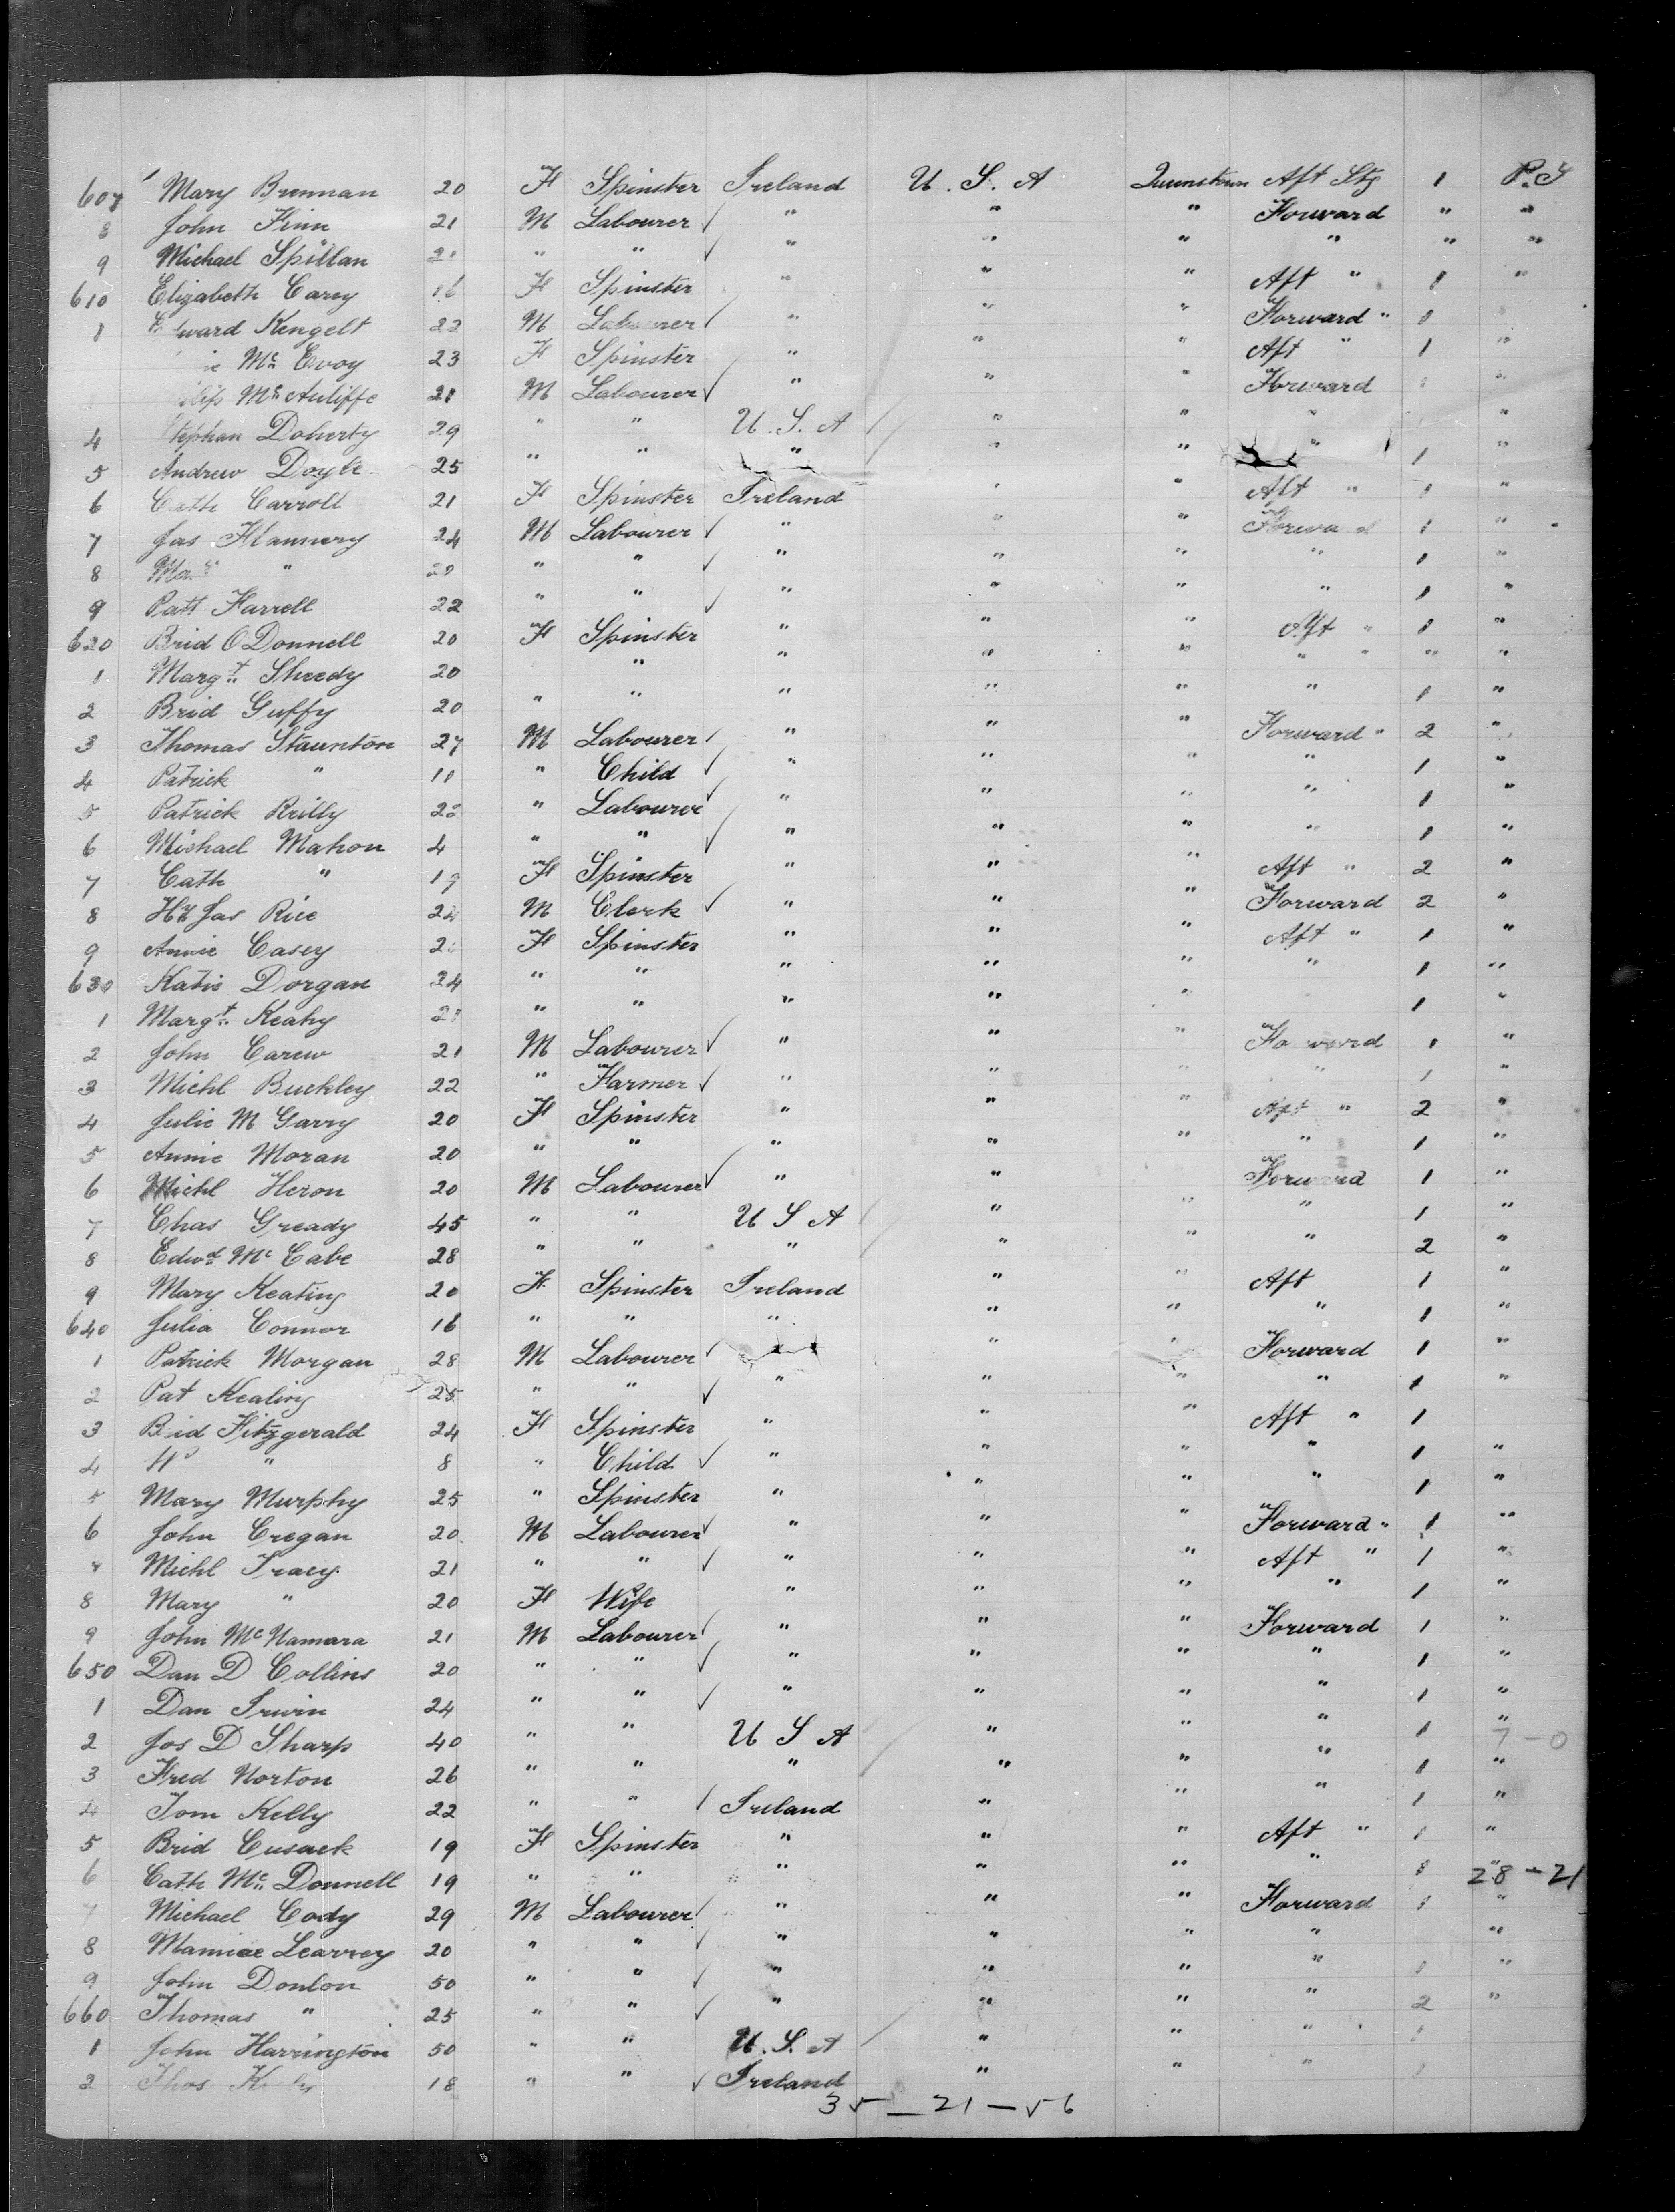 607 Mary Brennan 20 F Spinster Ireland U. S. A Queenstown Aft Stg 1 P. J
8 John Finn 21 M Labourer ✓ " " " Forward " "
9 Michael Spillan " ✓ " " " " " "
610 Elizabeth Carey 16 F Spinster " " " Aft " 1 "
1 Edward Kengelt 22 M Labourer ✓ " " " Forward " 1
Mc Evoy 23 F Spinster " " " Aft " 1 "
McAuliffe 21 M Labourer ✓ " " " Forward 1 "
4 Stephan Doherty 29 " " U. S. A " " " "
5 Andrew Doyle 25 " " " " " " 1 "
6 Cath Carroll 21 F Spinster Ireland " " Aft " 1 "
7 Jas Flannery 24 M Labourer ✓ " " " Forward 1 "
8 " 20 " " ✓ " " " " 1 "
9 Patt Farrell 22 " " ✓ " " " " 1 "
620 Brid O Donnell 20 F Spinster " " " Aft " 1 "
1 Margt Sheedy 20 " " " " " " " "
2 Brid Guffy 20 " " " " " " 1 "
3 Thomas Staunton 27 M Labourer ✓ " " " Forward " 2 "
4 Patrick " 11 " Child ✓ " " " " 1 "
5 Patrick Reilly 22 " Labourer ✓ " " " " 1 "
6 Michael Mahon 4 " " ✓ " " " " 1 "
7 Cath " 19 F Spinster " " " Aft " 2 "
8 Hy Jas Rice 24 M Clerk ✓ " " " Forward 2 "
9 Annie Casey F Spinster " " " Aft " 1 "
630 Katie Dorgan 24 " " " " " " 1 "
1 Margt Keahy " " " " " 1 "
2 John Carew 21 M Labourer ✓ " " " Forward 1 "
3 Michl Buckley 22 " Farmer ✓ " " " " 1 "
4 Julie M Garry 20 F Spinster " " " Aft " 2 "
5 Annie Moran 20 " " " " " " 1 "
6 Michl Heron 20 M Labourer ✓ " " Forward 1 "
7 Chas Gready 45 " " U S A " " " 1 "
8 Edwd Mc Cabe 28 " " " " " " 2 "
9 Mary Keating 20 F Spinster Ireland " " Aft 1 "
640 Julia Connor 16 " " " " " " 1 "
1 Patrick Morgan 28 M Labourer ✓ " " Forward 1 "
2 Pat Kealing 25 " " ✓ " " " " 1 "
3 Brid Fitzgerald 24 F Spinster " " " Aft " 1
4 " 8 " Child ✓ " " " " 1 "
5 Mary Murphy 25 " Spinster " " " " 1 "
6 John Cregan 20 M Labourer ✓ " " " Forward " 1 "
7 Michl Tracy 21 " " ✓ " " " Aft " 1 "
8 Mary " 20 F Wife " " " " 1 "
9 John McNamara 21 M Labourer ✓ " " " Forward 1 "
650 Dan D Collins 20 " " ✓ " " " " 1 "
1 Dan Irwin 24 " " ✓ " " " " 1 "
2 Jos D Sharp 40 " " U S A " " " 1 " 7 - 0
3 Fred Norton 26 " " " " " " 1 "
4 Tom Kelly 22 " " ✓ Ireland " " " 1 "
5 Brid Cusack 19 F Spinster " " " Aft " 1 "
6 Cath Mc Donnell 19 " " " " " " 1 " 28 - 21
7 Michael Cody 29 M Labourer ✓ " " " Forward 1 "
8 Learrey 20 " " ✓ " " " " "
9 John Donlon 50 " " ✓ " " " " 1 "
660 Thomas " 25 " " ✓ " " " " 2 "
1 John Harrington 50 " " U. S. A " " " 1
2 Thos 18 " " ✓ Ireland " " " 1
35 — 21 — 56